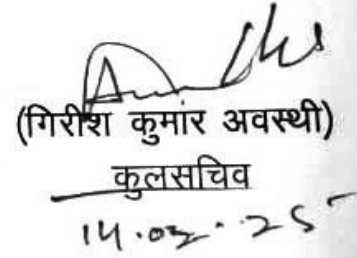 (गिरीश कुमार अवस्थी)
कुलसचिव
14.02.25